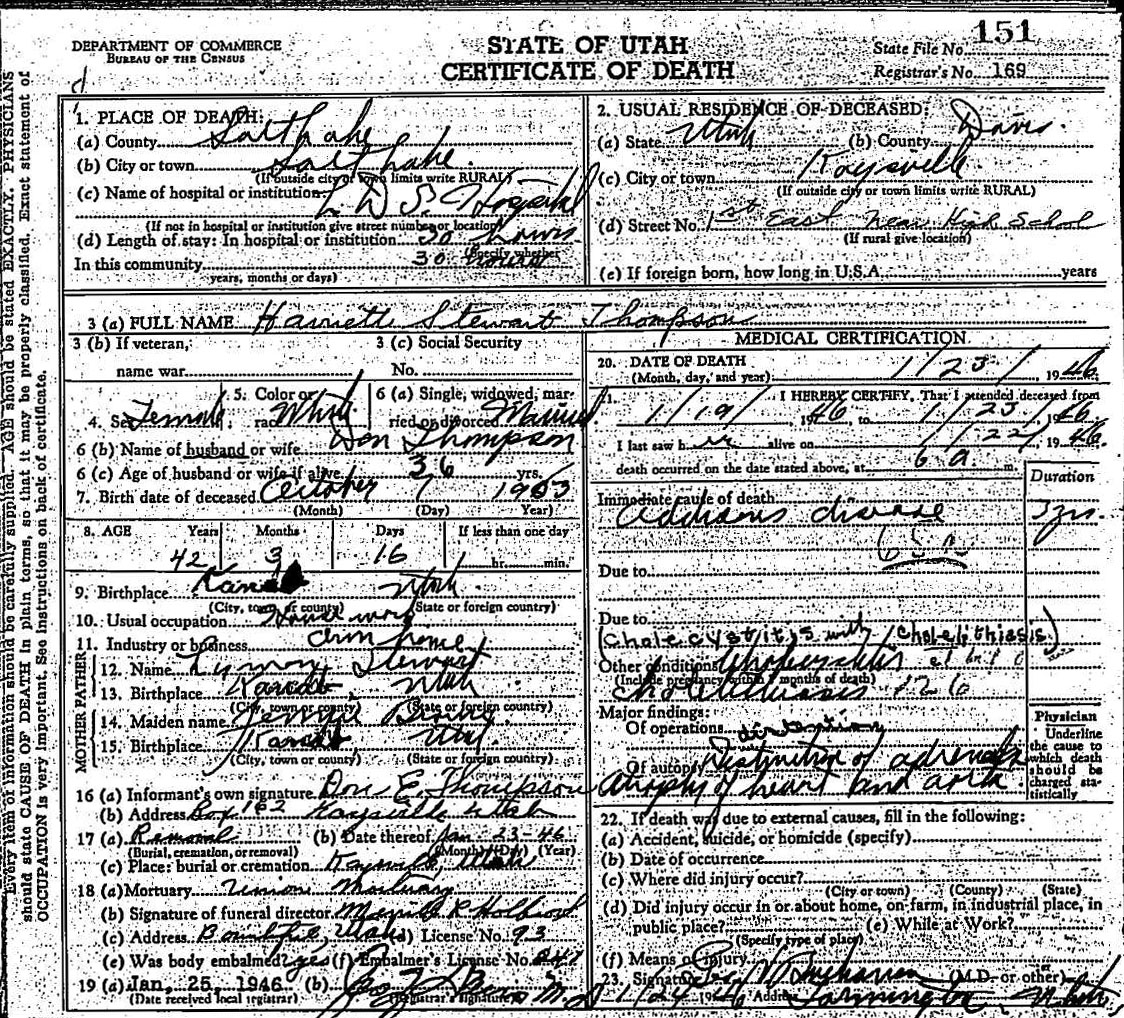 DEPARTMENT OF COMMERCE
BUREAU OF THE CENSUS
STATE OF UTAH
CERTIFICATE OF DEATH
State File No. 151
Registrar's No. 169
Every item of information should be carefully supplied. AGE should be stated EXACTLY. PHYSICIANS
should state CAUSE OF DEATH in plain terms, so that it may be properly classified. Exact statement of
OCCUPATION is very important. See instructions on back of certificate.
1. PLACE OF DEATH:
(a) County Salt Lake
(b) City or town Salt Lake
(If outside city or town limits write RURAL)
(c) Name of hospital or institution L D S Hospital
(If not in hospital or institution give street number or location)
(d) Length of stay: In hospital or institution 30 hours
(Specify whether
In this community 30 hours
years, months or days)
2. USUAL RESIDENCE OF DECEASED:
(a) State Utah (b) County Davis
(c) City or town Kaysville
(If outside city or town limits write RURAL)
(d) Street No. 1st East Near High School
(If rural give location)
(e) If foreign born, how long in U.S.A. years
3 (a) FULL NAME Harriette Stewart Thompson
3 (b) If veteran, name war
3 (c) Social Security No.
4. Sex Female 5. Color or race White 6 (a) Single, widowed, married or divorced Married
6 (b) Name of husband or wife Don Thompson
6 (c) Age of husband or wife if alive 36 yrs.
7. Birth date of deceased October 7 1903
(Month) (Day) Year)
8. AGE Years Months Days If less than one day
42 3 16 hr. min.
9. Birthplace Kanab Utah
(City, town or county) (State or foreign country)
10. Usual occupation House work
11. Industry or business own home
FATHER
12. Name Lyman Stewart
13. Birthplace Kanab, Utah
(City, town or county) (State or foreign country)
MOTHER
14. Maiden name
15. Birthplace Kanab, Utah
(City, town or county) (State or foreign country)
16 (a) Informant's own signature Don E. Thompson
(b) Address Box 162 Kaysville Utah
17 (a) Removal (b) Date thereof Jan 23-46
(Burial, cremation, or removal) (Month) (Day) (Year)
(c) Place: burial or cremation Kaysville, Utah
18 (a) Mortuary Union Mortuary
(b) Signature of funeral director Holbrook
(c) Address Bountiful, Utah (d) License No. 93
(e) Was body embalmed? yes (f) Embalmer's License No. 247
19 (a) Jan. 25, 1946 (b) M.D.
(Date received local registrar) (Registrar's signature)
MEDICAL CERTIFICATION
20. DATE OF DEATH
(Month, day, and year) 1/23/1946
21. I HEREBY CERTIFY, That I attended deceased from
1/19/, 1946, to 1/23/, 46.
I last saw her alive on 1/22/, 1946.
death occurred on the date stated above, at 6 a m.
Duration
Immediate cause of death
Addisons disease 3 yrs.
Due to
Due to
(Cholecystitis with cholelithiasis)
Other conditions
(Include pregnancy within 3 months of death)
Cholelithiasis 126
Major findings:
Of operations
Of autopsy Destruction of adrenals
Atrophy of heart and aorta
Physician
Underline
the cause to
which death
should be
charged sta-
tistically
22. If death was due to external causes, fill in the following:
(a) Accident, suicide, or homicide (specify)
(b) Date of occurrence
(c) Where did injury occur?
(City or town) (County) (State)
(d) Did injury occur in or about home, on farm, in industrial place, in
public place? (e) While at Work?
(Specify type of place)
(f) Means of injury
23. Signature (M.D. or other)
1/24 1946 Address Farmington, Utah